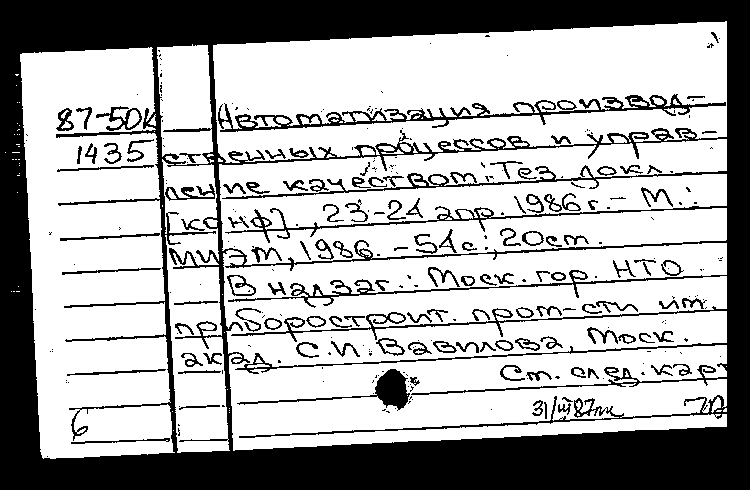 87-50К Автоматизация производ-
1435 ственных процессов и управ-
ление качеством: Тез. докл.
[конф]., 23-24 апр. 1986 г. - М.:
МИЭМ, 1986. - 54 с.; 20 см.
В надзаг.: Моск. гор. НТО
приборостроит. пром-сти им.
акад. С.И. Вавилова, Моск.
См. след. карт
6 31/III 87